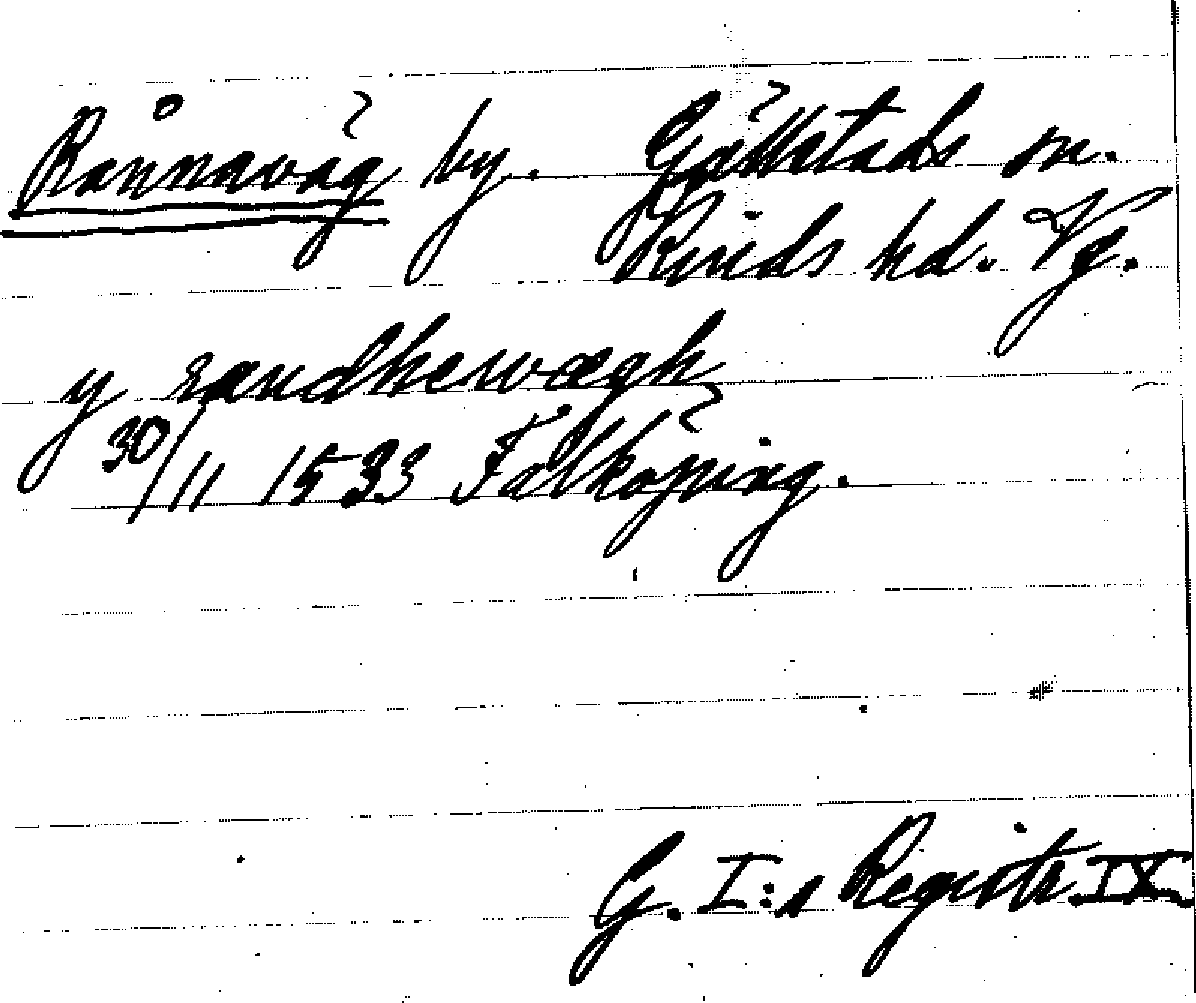 Rånnaväg by. Gällstads sn.
Kinds hd. Vg.
y randhewægh
30/11 1533 Falköping.
G. I:s Registr. IX